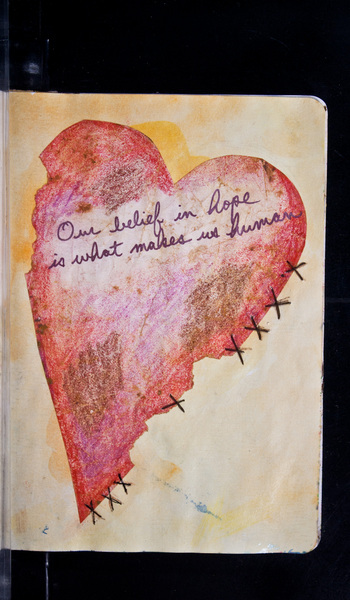 Our belief in hope
is what makes us human